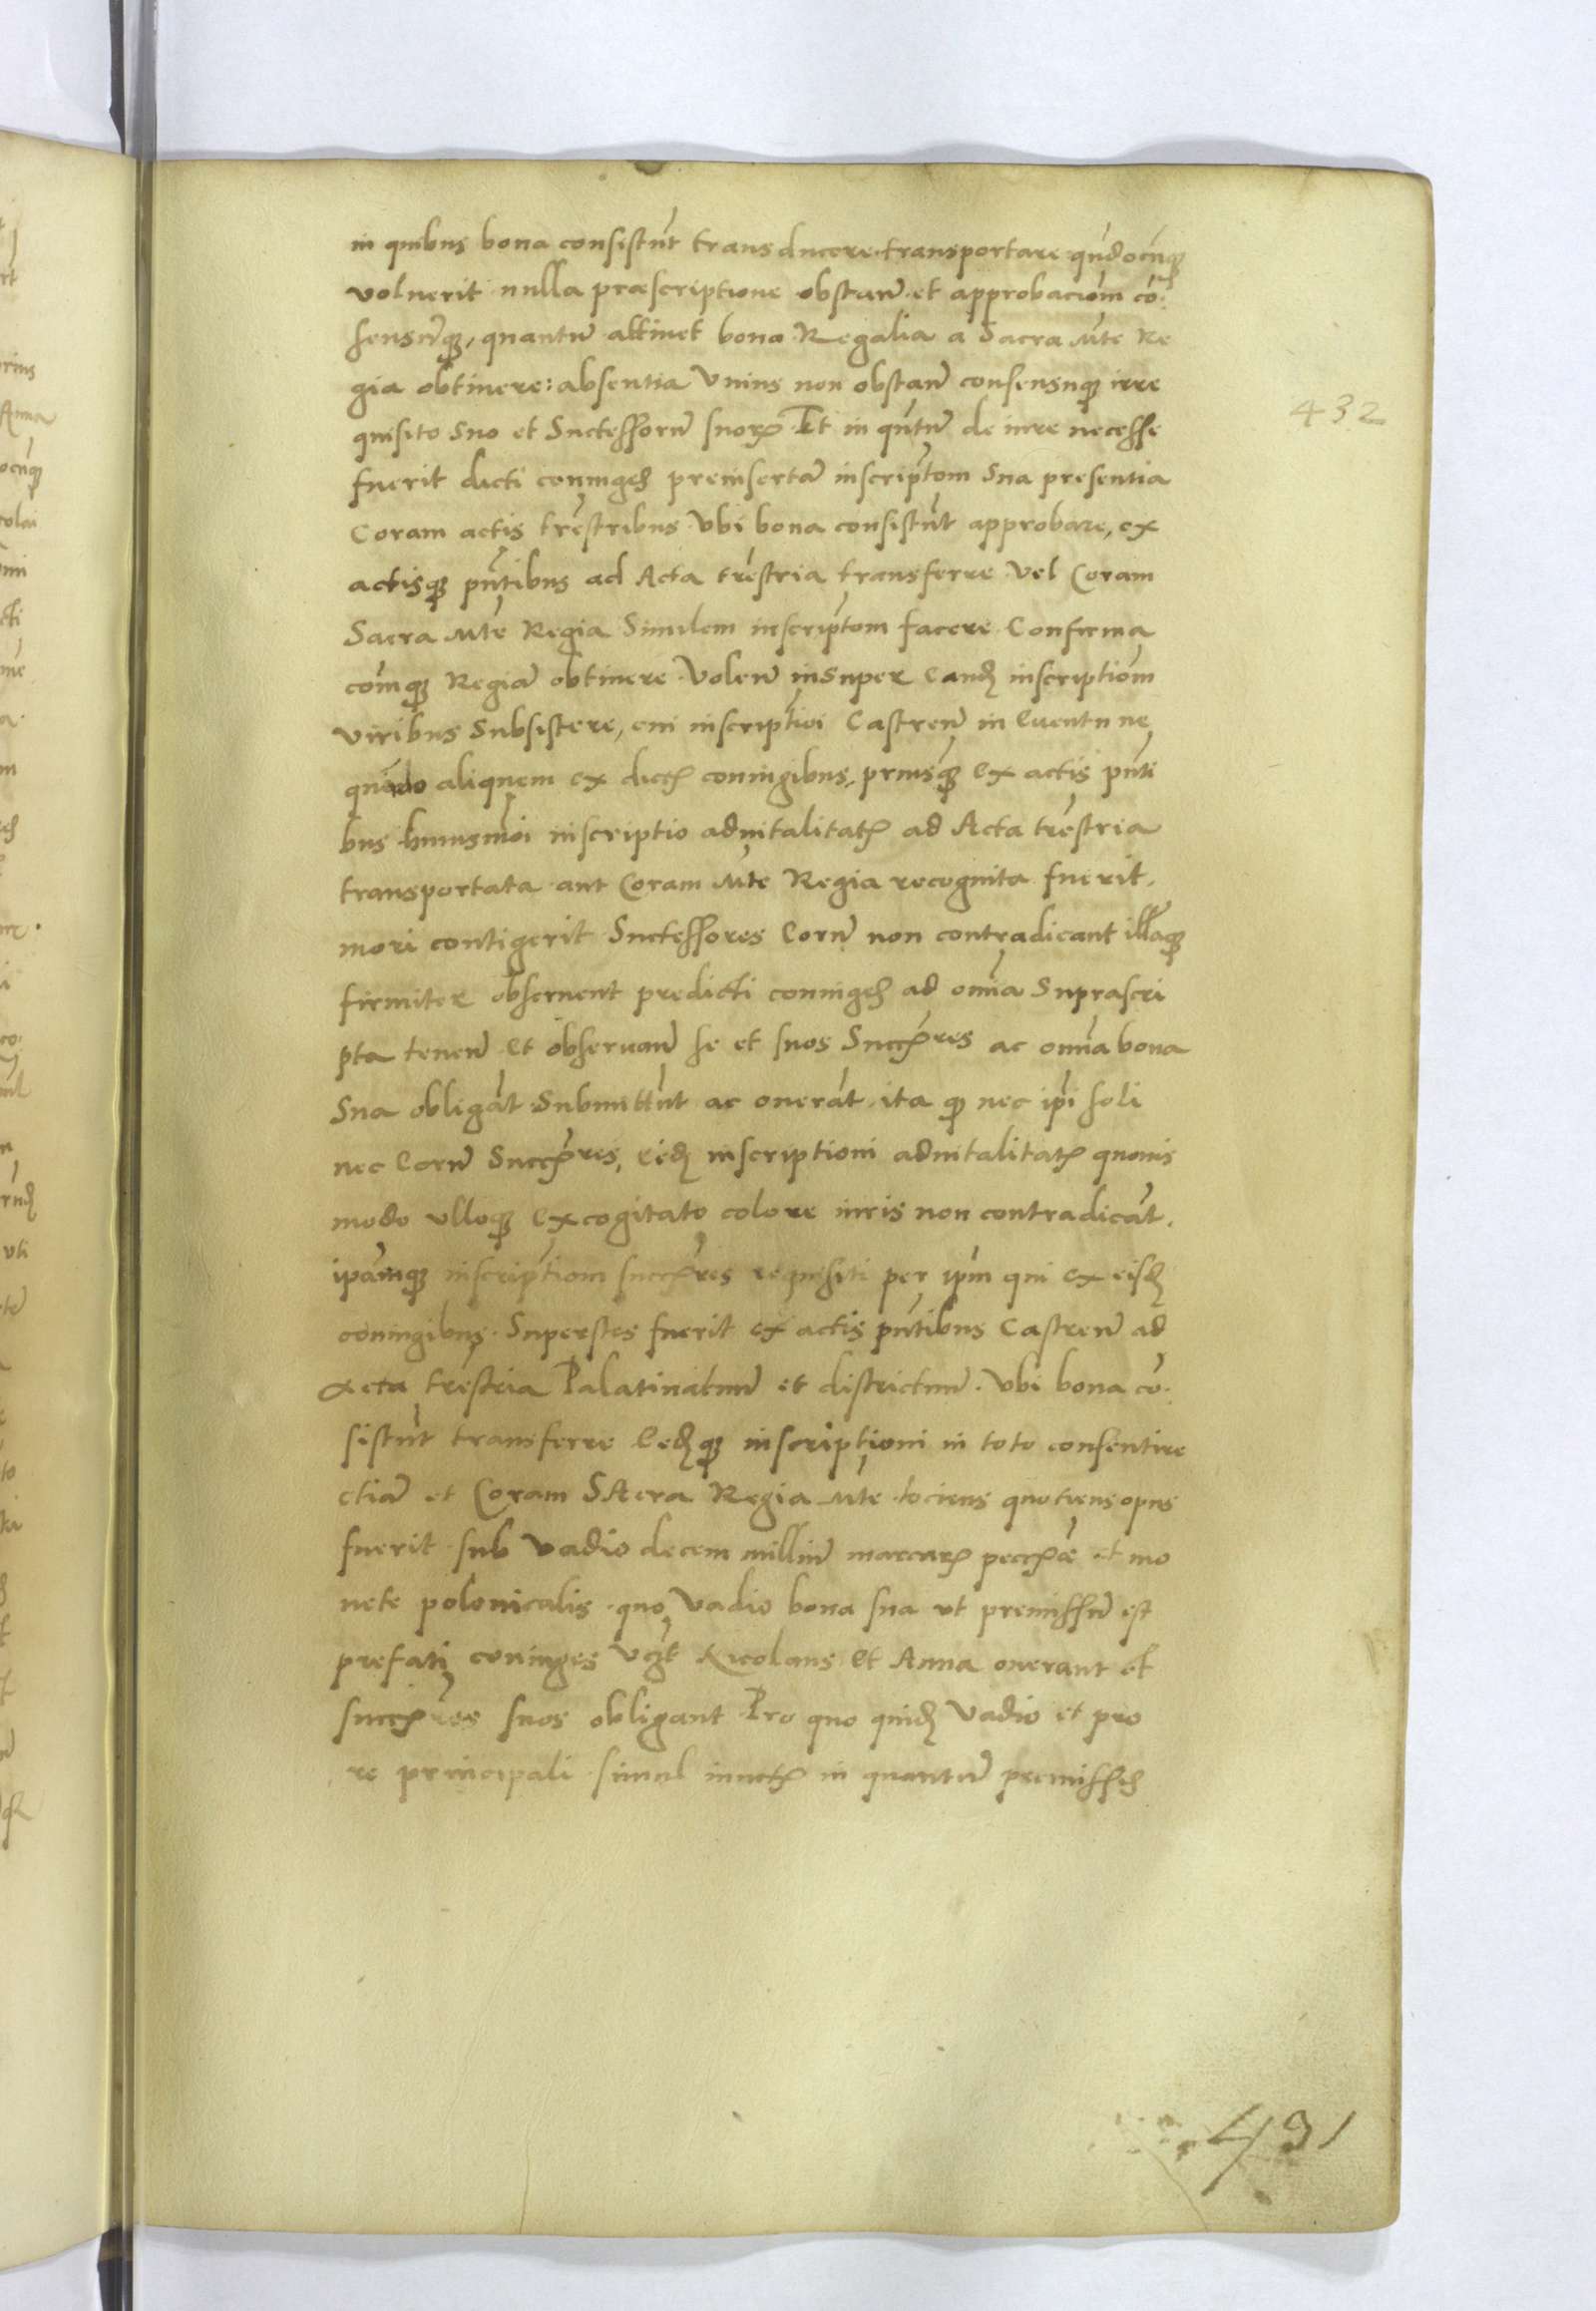 in quibus bona consistu͂t transducere transportare qu͂docu͂qȝ
voluerit nulla præscriptione obstan͂ et approbacio͂m co͂.
sensu͂qȝ, quantu͂ attinet bona Regalia a Sacra Mte Re
gia obtinere: absentia Vnius non obstan͂ consensuqȝ irre
quisito Suo et Successoru͂ suorꝝ Et in qu͂tu͂ de iure necesse
fuerit dicti coniuges preinserta͂ inscript͂om Sua presentia
Coram actis tr͂estribus Vbi bona consistu͂t approbare, ex
actisqȝ pn͂tibus ad Acta tr͂estria transferre Vel Coram
Sacra Mte Regia Similem inscript͂om facere Confirma
co͂mqȝ Regia͂ obtinere Volen͂ inSuper Eandȝ inscriptio͂m
viribus Subsistere, cui inscript͂ioi Castren͂ in Euentu ne
quando aliquem ex dictꝭ coniugibus, priusqȝ Ex actis pn͂ti
bus huiusmo͂i inscriptio aduitalitatꝭ ad Acta tr͂estria
transportata aut Coram Mte Regia recognita fuerit.
mori contigerit Successores Eoru͂ non contradicant illa͂qȝ
firmiter obseruent predicti coniuges ad om͂ia Suprascri
pta tenen͂ Et obseruan͂ se et suos Succꝭres ac om͂ia bona
Sua obliga͂t Submittu͂t ac onera͂t ita qȝ nec ip͂i soli
nec Eoru͂ Succꝭres, Eidȝ inscriptioni aduitalitatꝭ quouis
modo vlloqȝ Excogitato colore iuris non contradica͂t.
ipa͂mqȝ inscript͂iom succꝭres requisiti per ip͂m qui Ex eisdȝ
coniugibus Superstes fuerit ex actis pn͂tibus Castren͂ ad
Acta tr͂estria Palatinatuu͂ et districtuu͂. Vbi bona co͂.
sistu͂t transferre Eedȝqȝ inscriptioni in toto consentire
etia͂ et Coram SAcra Regia Mte tociens quotiens opus
fuerit sub Vadio decem milliu͂ marcarꝝ pecc͂æ et mo
nete polonicalis quo Vadio bona sua vt premissu͂ est
prefati coniuges Vꝫt Nicolaus Et Anna onerant et
succꝭres suos obligant Pro quo quidȝ Vadio et pro
re principali simul iunctꝭ in quantu͂ premissis
432
431